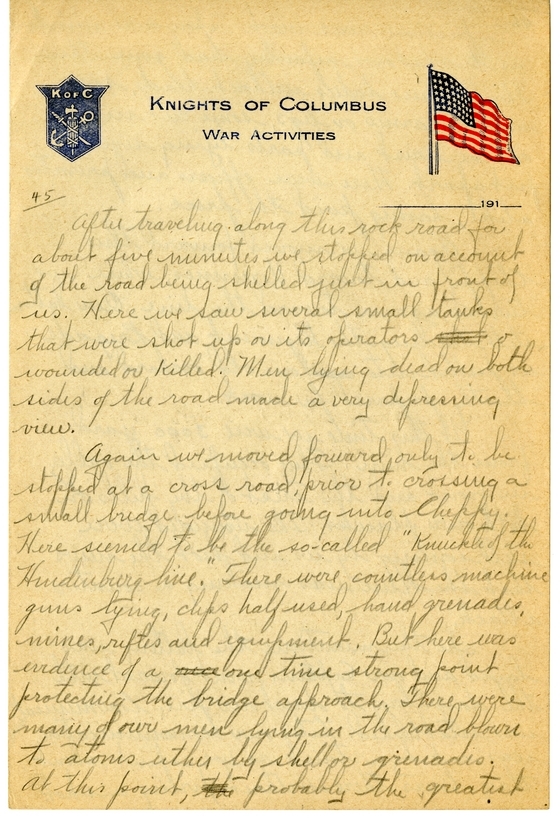 K OF C
KNIGHTS OF COLUMBUS
WAR ACTIVITIES
45
191
After traveling along this rock road for
about five minutes we stopped on account
of the road being shelled just in front of
us. Here we saw several small tanks
that were shot up or its operators
wounded or killed. Men lying dead on both
sides of the road made a very depressing
view.
Again we moved forward only to be
stopped at a cross road, prior to crossing a
small bridge before going into Cheppy.
Here seemed to be the so-called "Knuckle of the
Hindenburg line." There were countless machine
guns lying, clips half used, hand grenades,
mines, rifles and equipment. But here was
evidence of a one time strong point
protecting the bridge approach. There were
many of our men lying in the road blown
to atoms either by shell or grenades.
At this point, probably the greatest